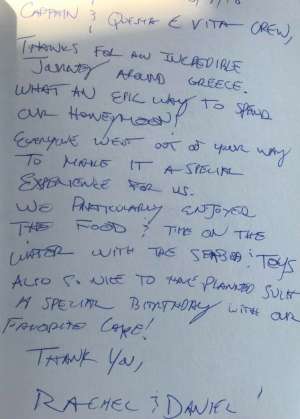 CAPTAIN & QUESTA E VITA CREW,
THANKS FOR AN INCREDIBLE
JOURNEY AROUND GREECE.
WHAT AN EPIC WAY TO SPEND
OUR HONEYMOON!
EVERYONE WENT OUT OF YOUR WAY
TO MAKE IT A SPECIAL
EXPERIENCE FOR US.
WE PARTICULARLY ENJOYED
THE FOOD & TIME ON THE
WATER WITH THE SEABOB & TOYS
ALSO SO NICE TO HAVE PLANNED SUCH
A SPECIAL BIRTHDAY WITH OUR
FAVORITE CAKE!
THANK YOU,
RACHEL & DANIEL